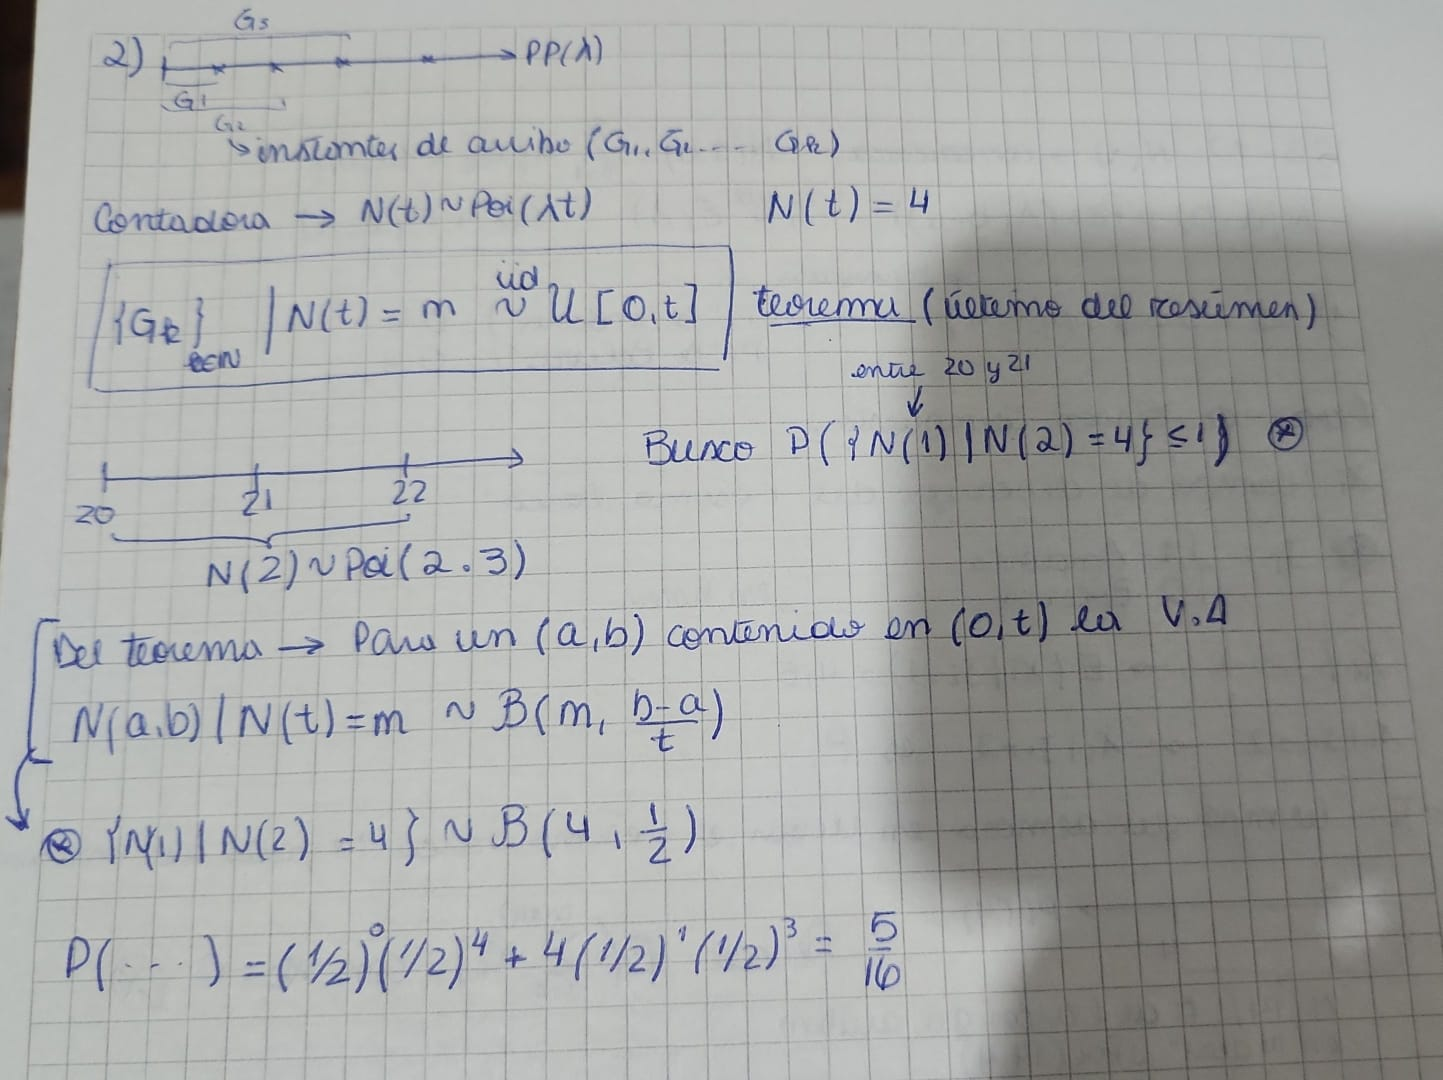 G3
2) PP(λ)
G1
G2
↳ instantes de arribo (G1, G2 ... Gk)
Contadora → N(t) ~ Poi(λt) N(t) = 4
{Gk}k∈N | N(t) = m iid ~ U [0,t] teorema (último del resumen)
entre 20 y 21
↓
Busco P({N(1) | N(2) = 4} ≤ 1) ⊛
20 21 22
N(2) ~ Poi(2.3)
Del teorema → Para un (a,b) contenido en (0,t) la V.A
N(a,b) | N(t) = m ~ B(m, b-a/t)
⊛ {N(1) | N(2) = 4} ~ B(4, 1/2)
P(...) = (1/2)⁰(1/2)⁴ + 4(1/2)¹(1/2)³ = 5/16